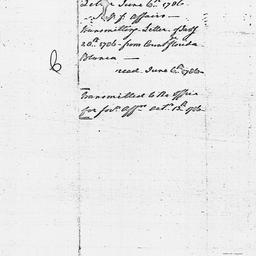 Let. June 6th. 1786
affairs —
transmitting Letter of
20th. 1786 from Count Florida
Blanca —
read June 6th. 1786
6
Transmitted to the Office
for for. Affrs. Octr. 13th. 1786